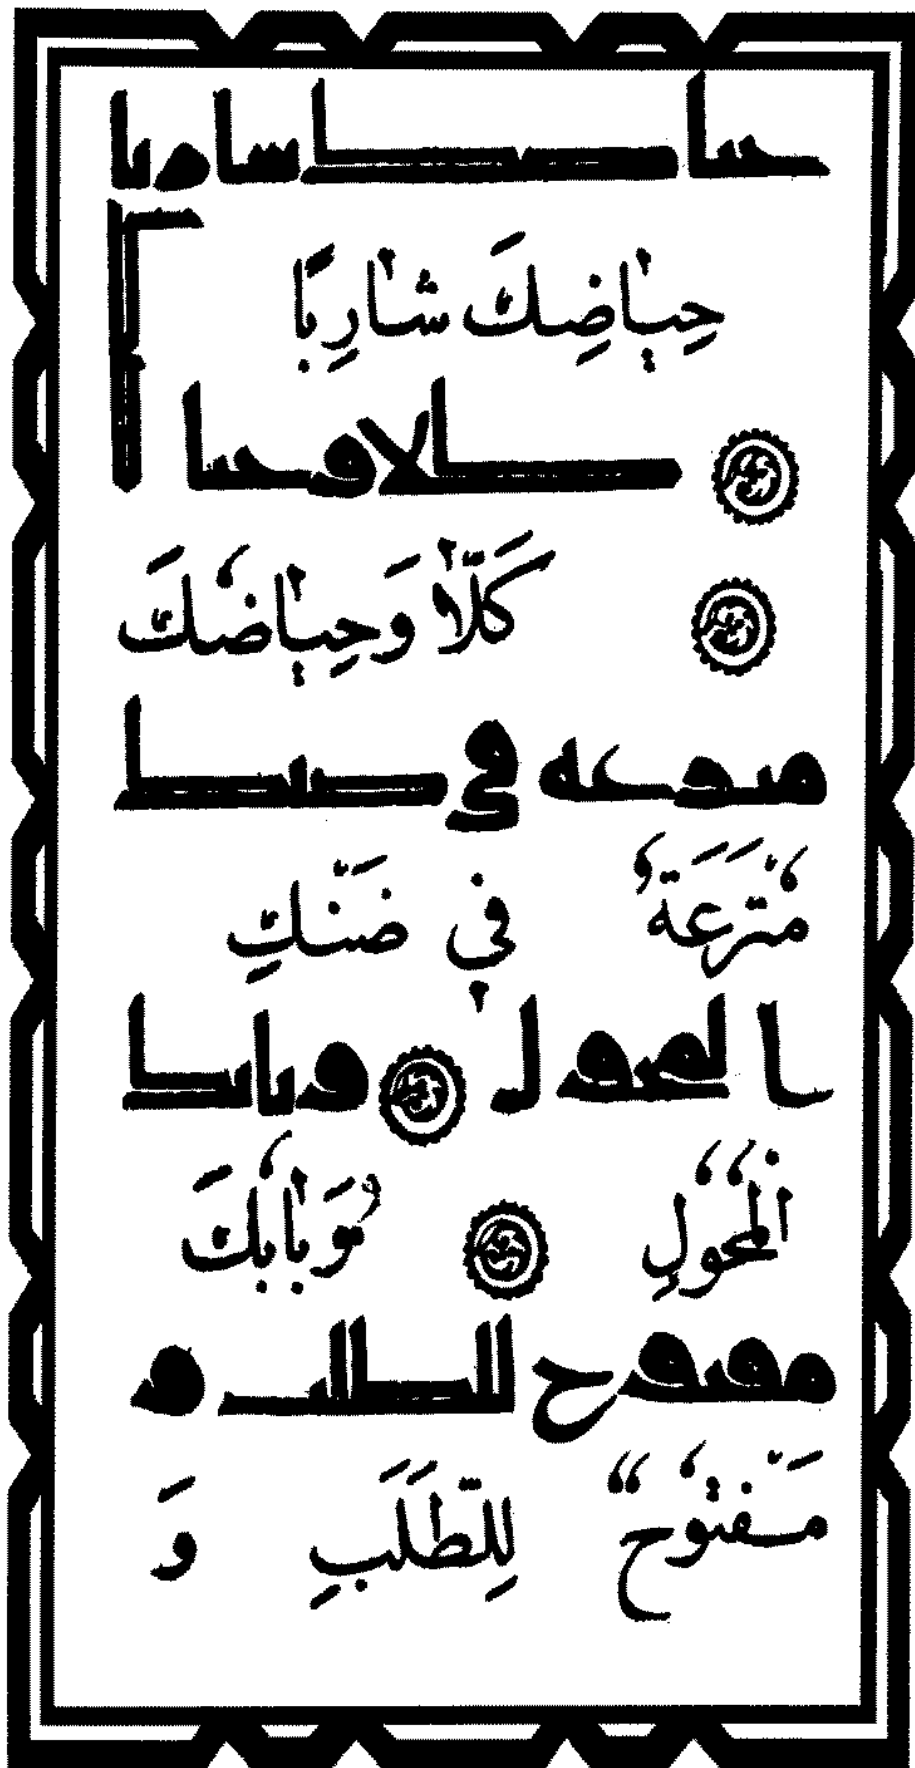 حياضك شاربا
حِيٰاضِكَ شٰارِبًا
كلا وحياضك
كَلّٰا وَحِيٰاضُكَ
مترعة في ضنك
مُتْرَعَةٌ في ضَنْكِ
المحول وبابك
الْمُحُولِ وَبٰابُكَ
مفتوح للطلب و
مَفْتُوحٌ لِلطَّلَبِ وَ